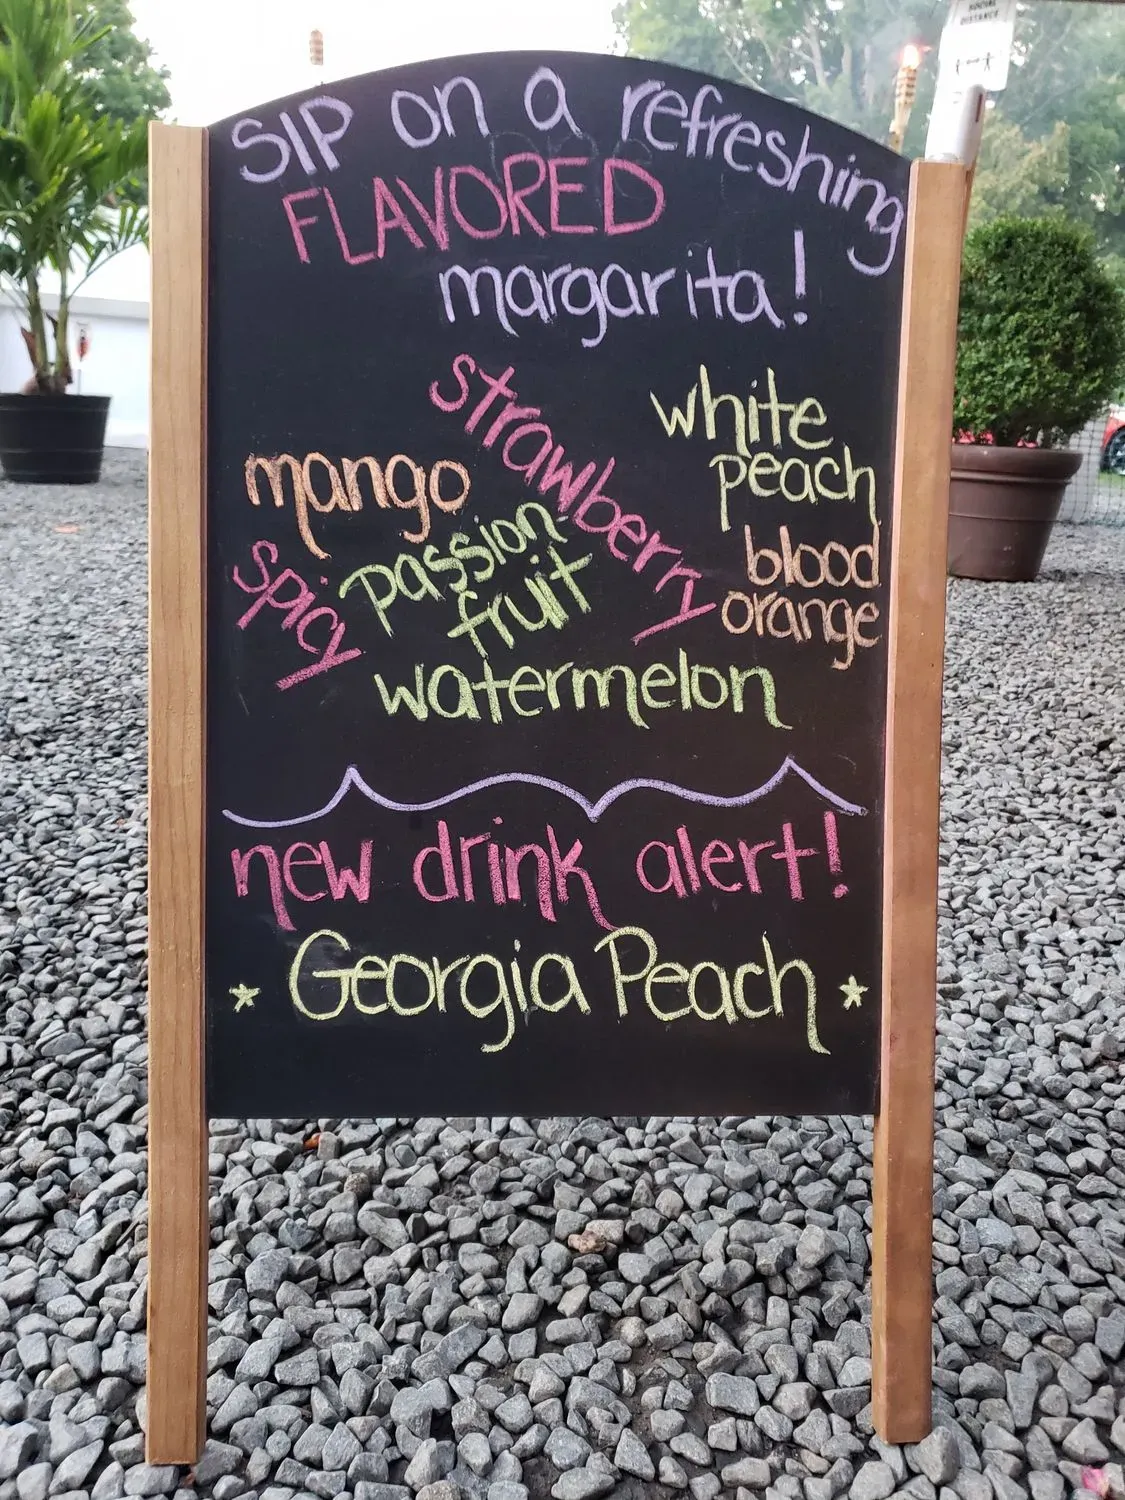 SOCIAL
DISTANCE
SIP on a refreshing
FLAVORED
margarita!
strawberry
white
peach
mango
passion
fruit
blood
orange
spicy
watermelon
new drink alert!
* Georgia Peach *